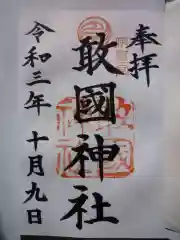 奉拝
敢國神社
令和三年 十月九日